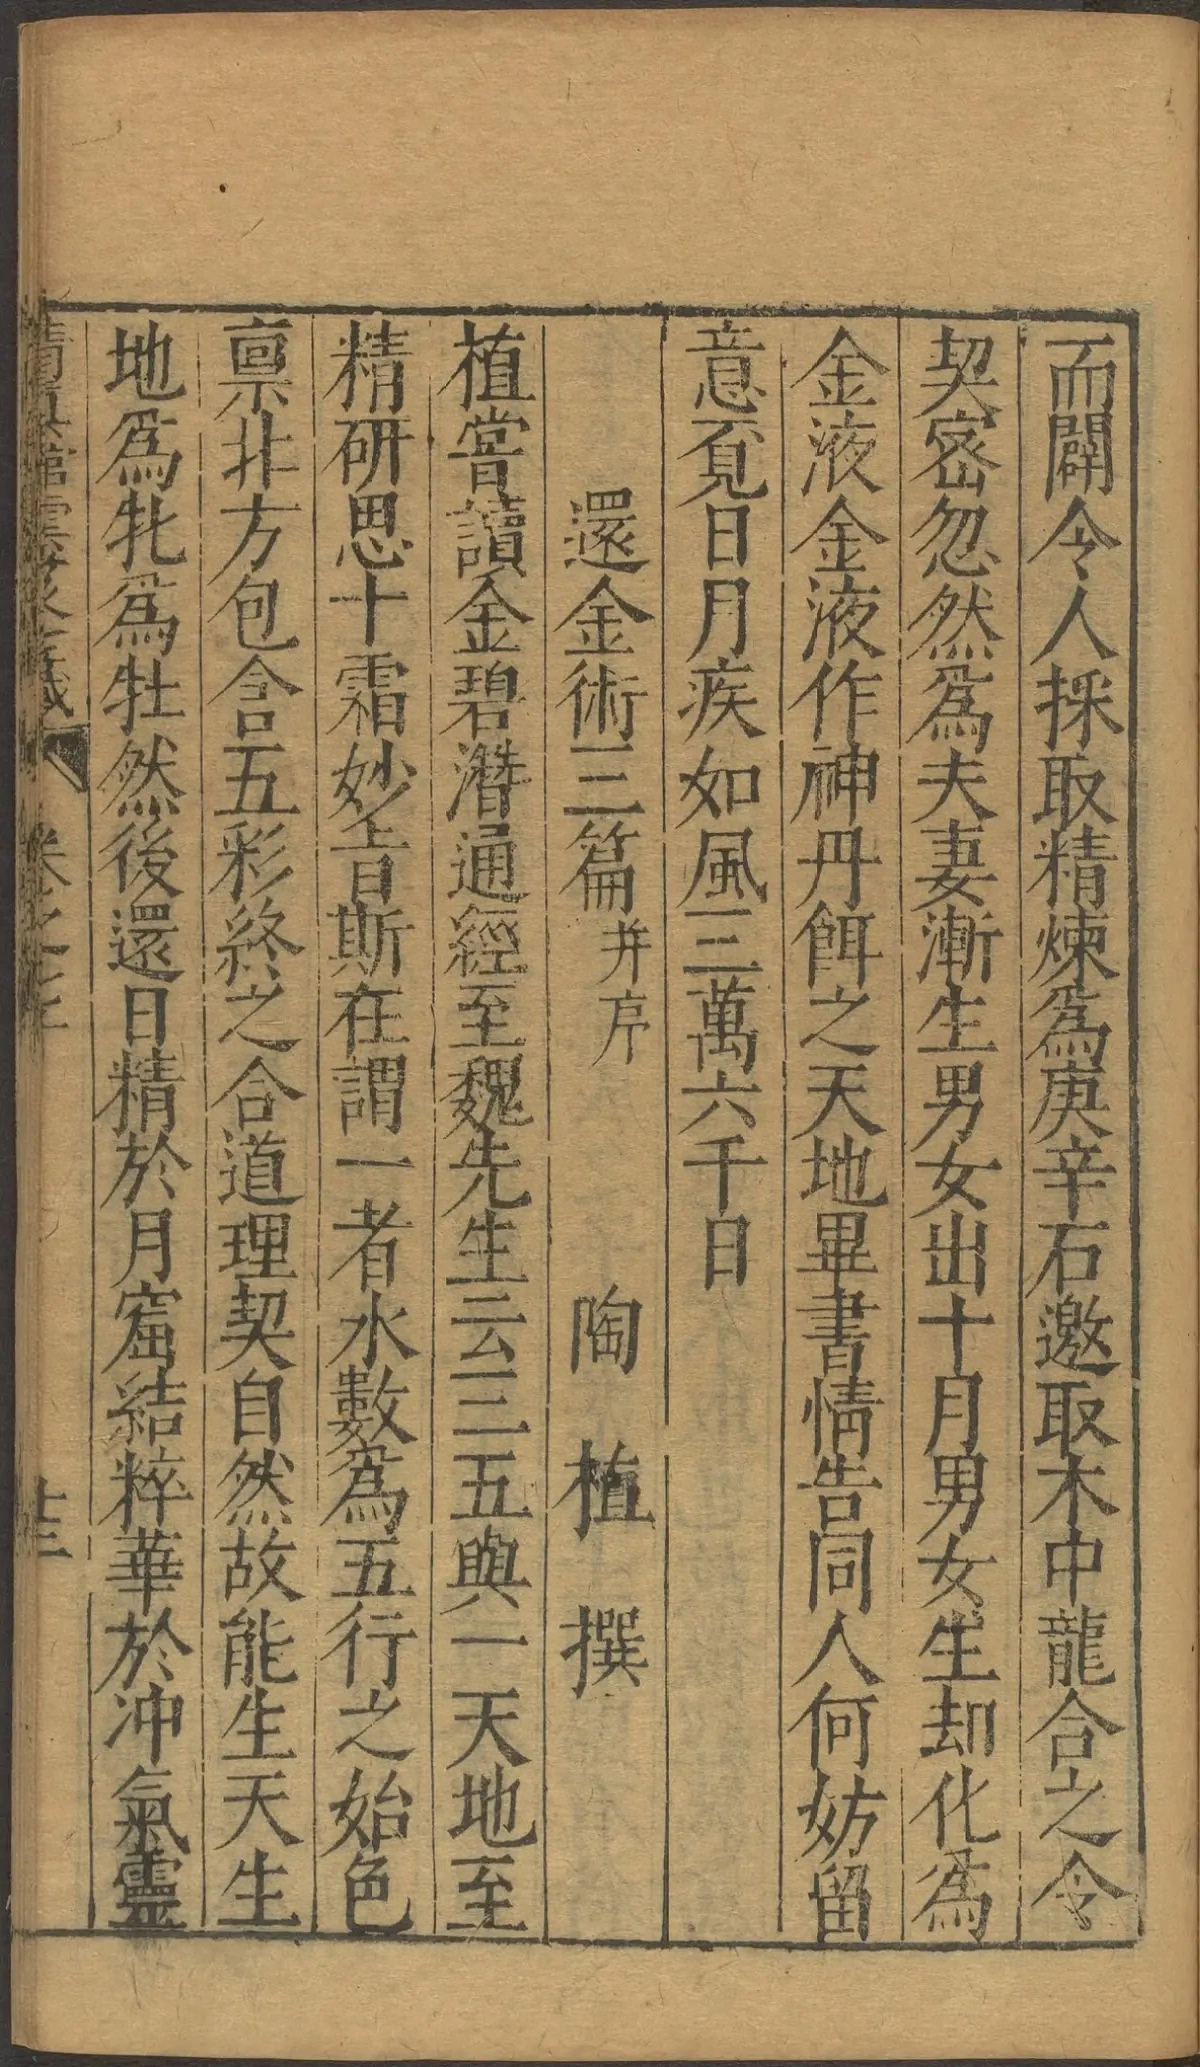 而闢令人採取精煉爲庚辛石邀取木中龍合之令
契密忽然爲夫妻漸生男女出十月男女生却化爲
金液金液作神丹餌之天地畢書情告同人何妨留
意覔日月疾如風三萬六千日
還金術三篇并序 陶植撰
植嘗讀金碧潛通經至魏先生云三五與一天地至
精研思十霜妙音斯在謂一者水數爲五行之始色
稟非方包含五彩終之合道理契自然故能生天生
地爲牝爲牡然後還日精於月窟結粹華於冲氣靈
清真館雲笈七籖 卷之七 十三